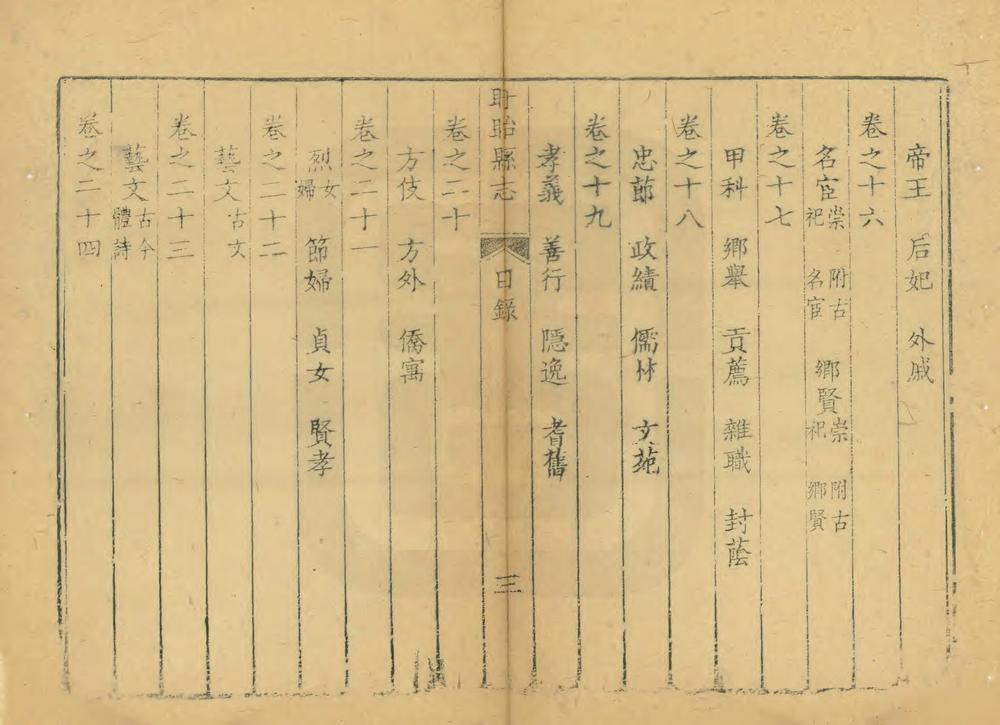 帝王　后妃　外戚
卷之十六
名宦崇祀　附古名宦　鄉賢崇祀　附古鄉賢
卷之十七
甲科　鄉舉　貢薦　雜職　封蔭
卷之十八
忠節　政績　儒林　文苑
卷之十九
孝義　善行　隱逸　耆舊
盱眙縣志　目錄　三
卷之二十
方伎　方外　僑寓
卷之二十一
烈女婦　節婦　貞女　賢孝
卷之二十二
藝文古文
卷之二十三
藝文古今體詩
卷之二十四